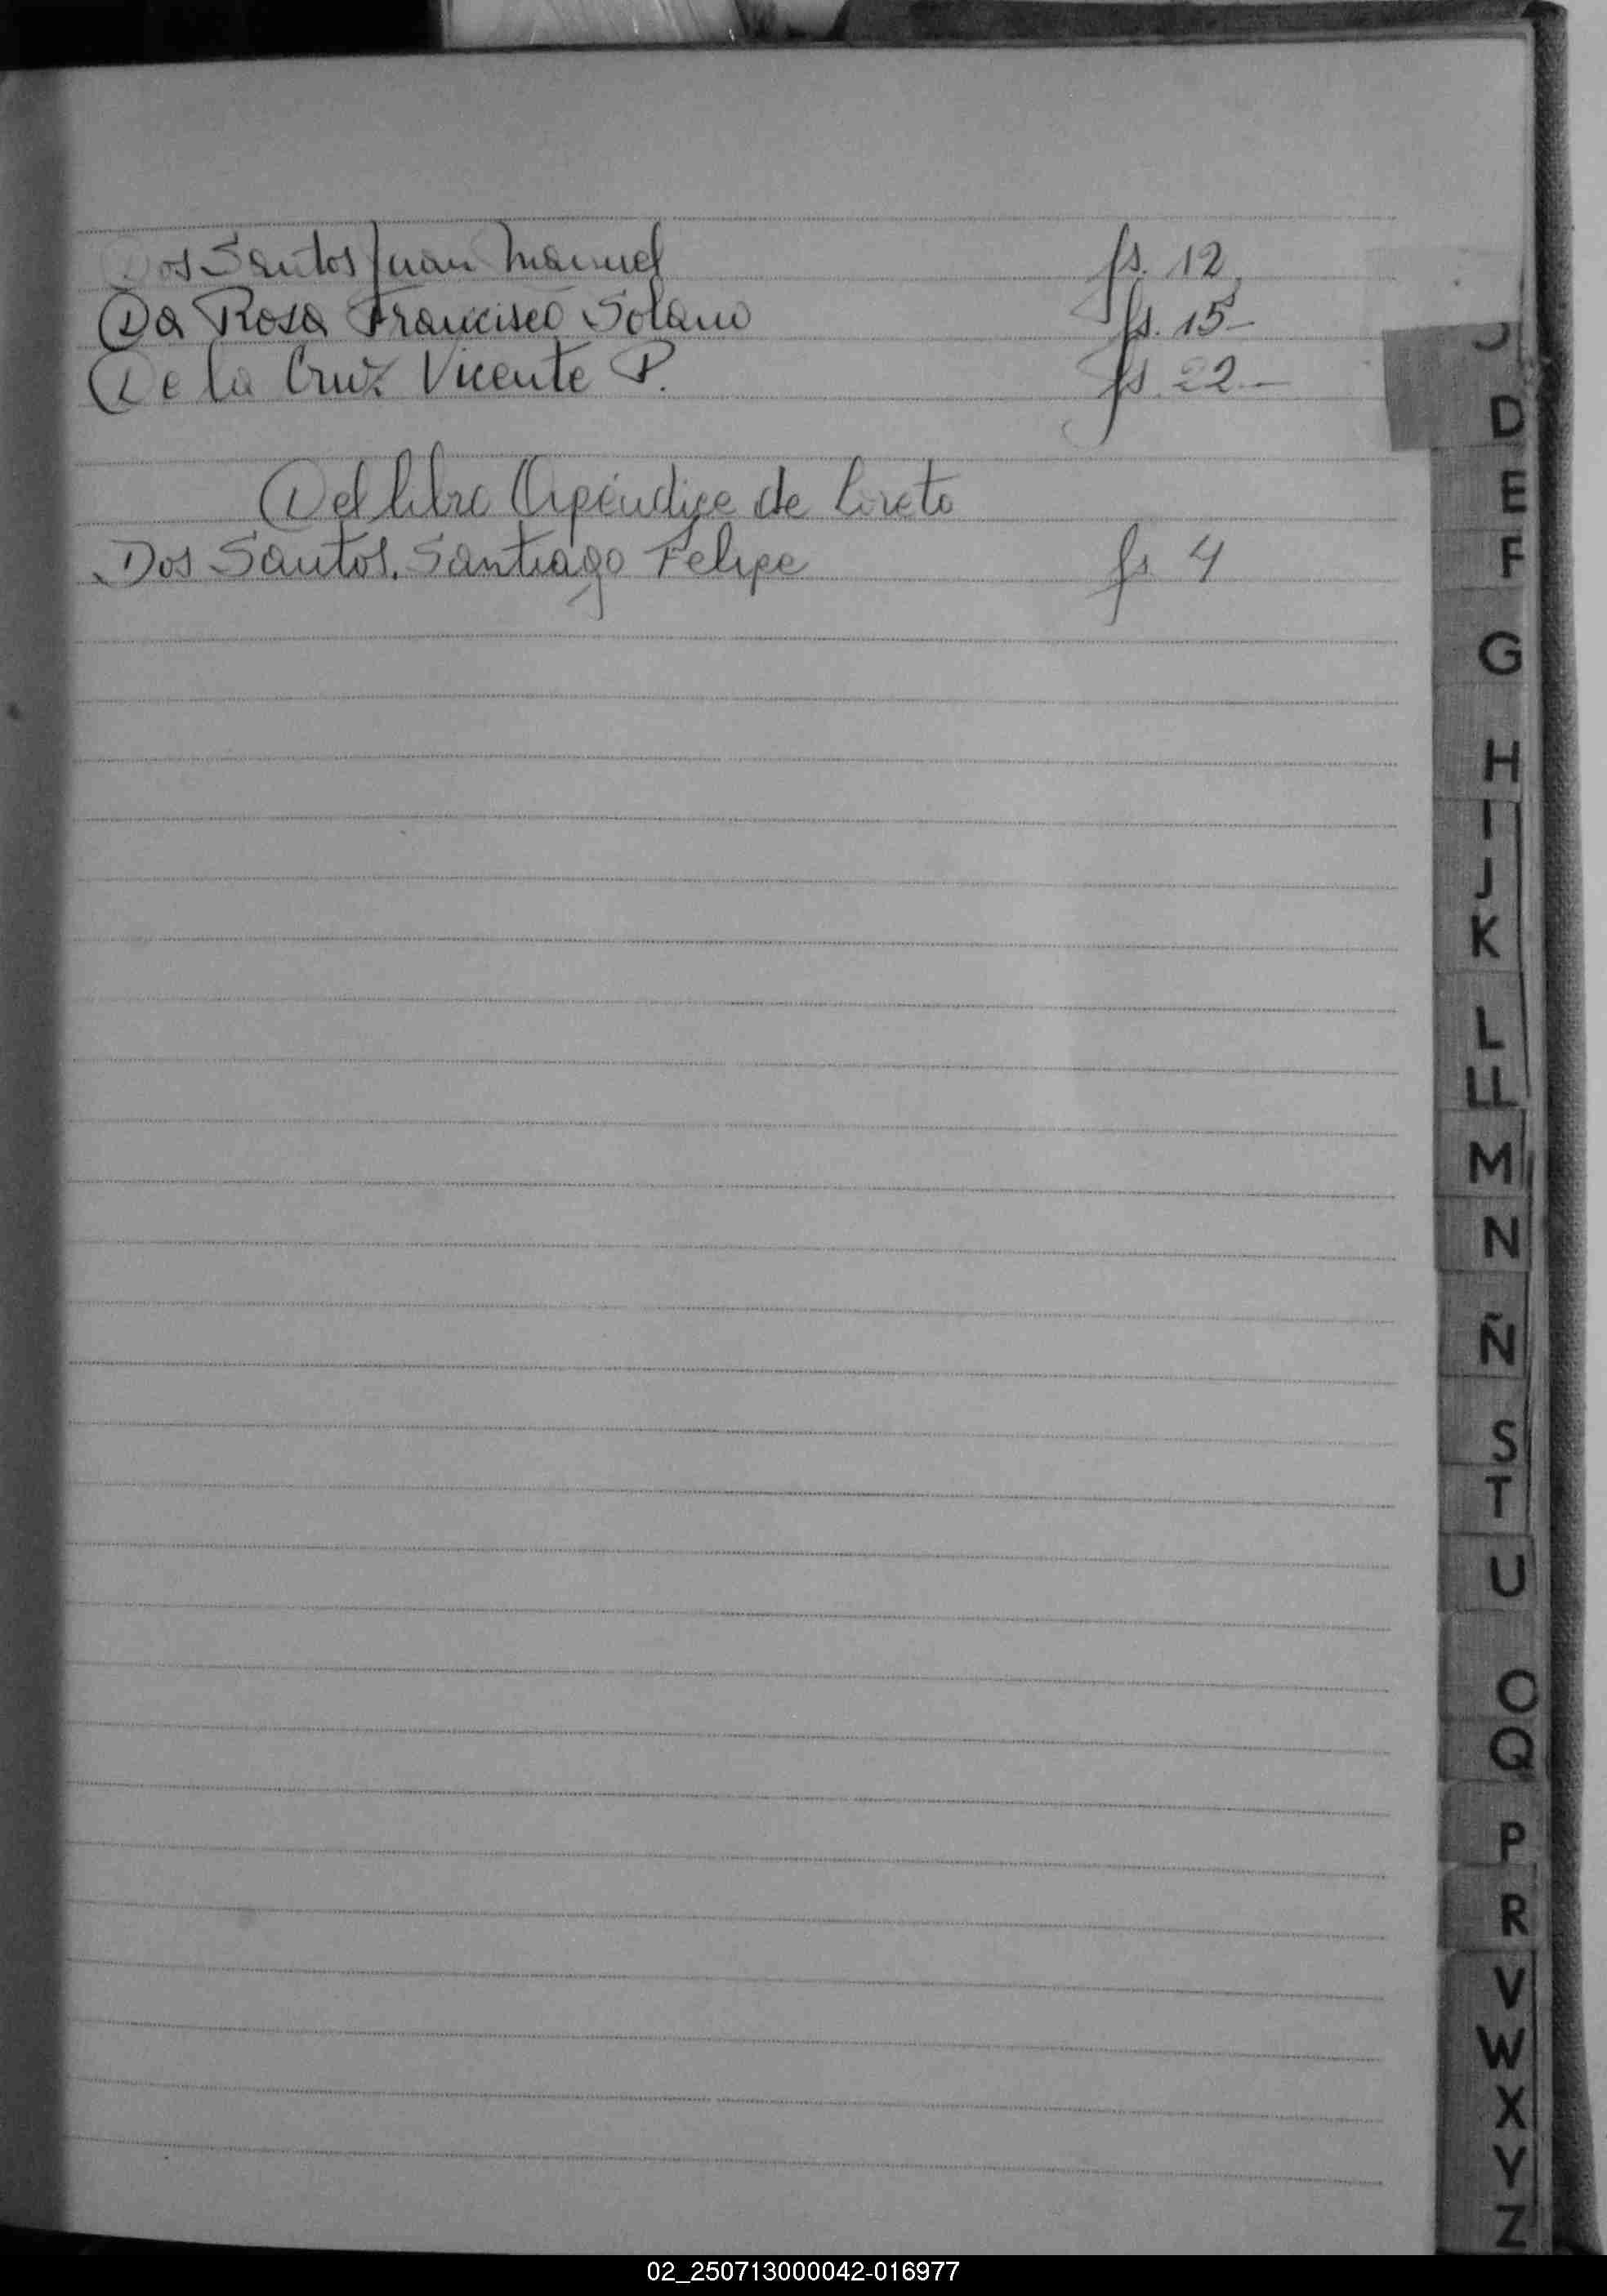 Dos Santos Juan Manuel fs. 12
Da Rosa Francisco Solano fs. 15-
De la Cruz Vicente P. fs. 22-
Del libro Apéndice de Loreto
Dos Santos, Santiago Felipe fs. 4
D
E
F
G
H
I
J
K
L
LL
M
N
Ñ
S
T
U
O
Q
P
R
V
W
X
Y
Z
02_250713000042-016977